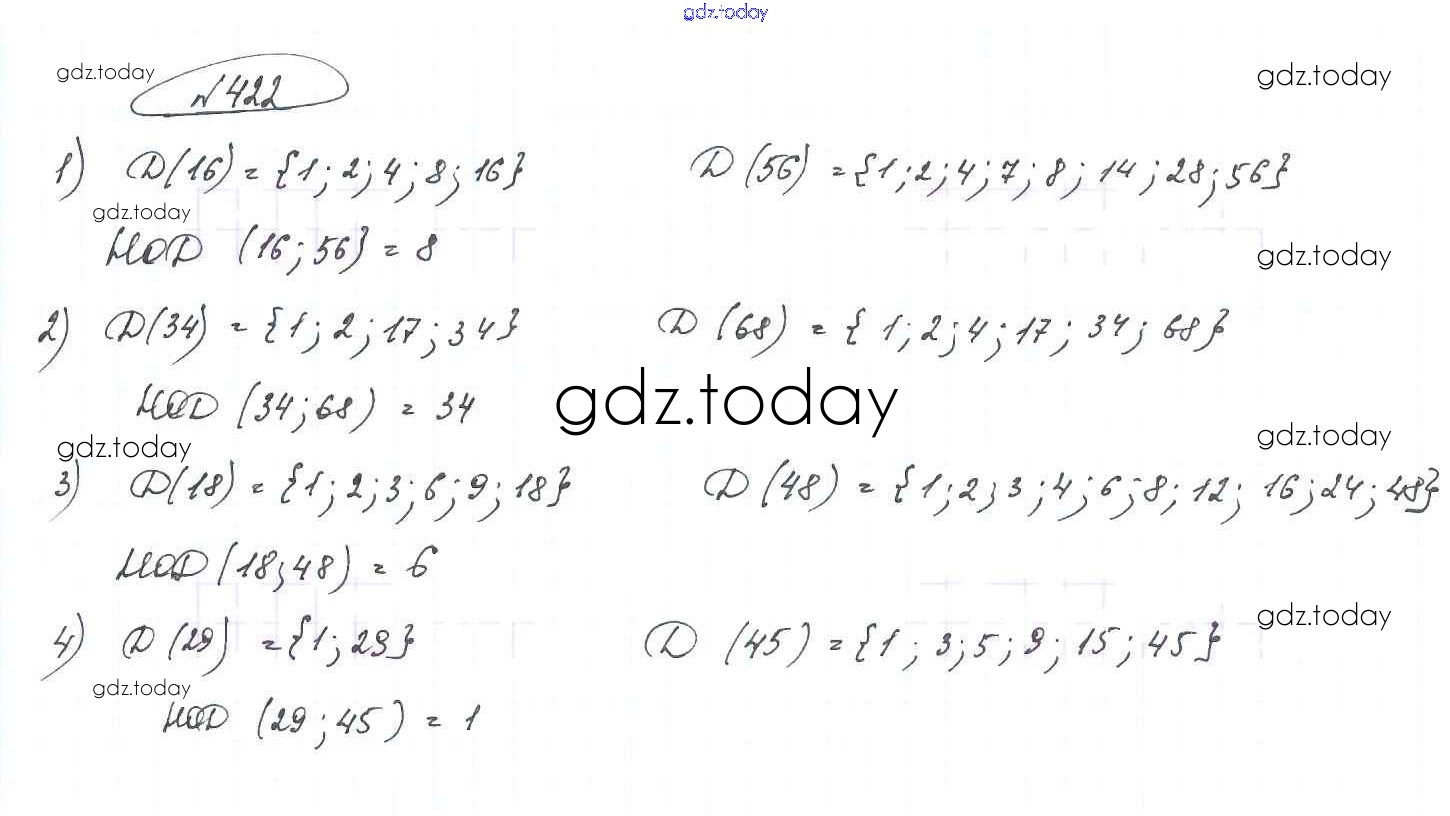 gdz.today
gdz.today
№422
gdz.today
1) D(16) = {1; 2; 4; 8; 16} D(56) = {1; 2; 4; 7; 8; 14; 28; 56}
gdz.today
НОD (16; 56} = 8
gdz.today
2) D(34) = {1; 2; 17; 34} D(68) = {1; 2; 4; 17; 34; 68}
НОD (34; 68) = 34
gdz.today
gdz.today
gdz.today
3) D(18) = {1; 2; 3; 6; 9; 18} D(48) = {1; 2; 3; 4; 6; 8; 12; 16; 24; 48}
НОD (18; 48) = 6
gdz.today
4) D(29) = {1; 29} D(45) = {1; 3; 5; 9; 15; 45}
gdz.today
НОD (29; 45) = 1